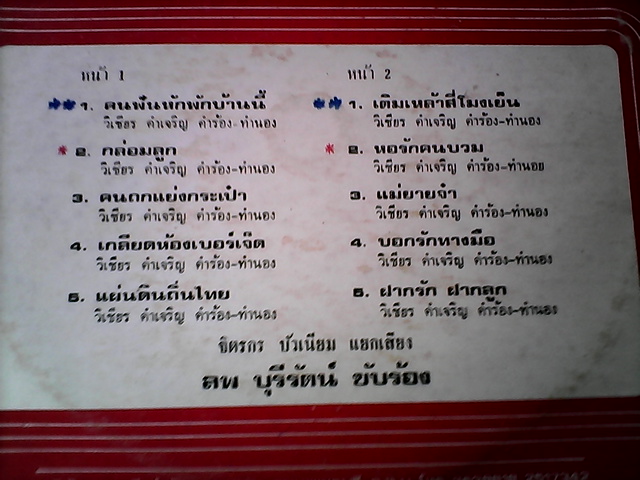 หน้า 1
1. คนฟันหักพักบ้านนี้
วิเชียร คำเจริญ คำร้อง-ทำนอง
2. กล่อมลูก
วิเชียร คำเจริญ คำร้อง-ทำนอง
3. คนถูกแย่งกระเป๋า
วิเชียร คำเจริญ คำร้อง-ทำนอง
4. เกลียดห้องเบอร์เจ็ด
วิเชียร คำเจริญ คำร้อง-ทำนอง
5. แผ่นดินถิ่นไทย
วิเชียร คำเจริญ คำร้อง-ทำนอง
หน้า 2
1. เติมเหล้าสี่โมงเย็น
วิเชียร คำเจริญ คำร้อง-ทำนอง
2. หอรักคนบวม
วิเชียร คำเจริญ คำร้อง-ทำนอย
3. แม่ยายจ๋า
วิเชียร คำเจริญ คำร้อง-ทำนอง
4. บอกรักทางมือ
วิเชียร คำเจริญ คำร้อง-ทำนอง
5. ฝากรัก ฝากลูก
วิเชียร คำเจริญ คำร้อง-ทำนอง
จิตรกร บัวเนียม แยกเสียง
ลพ บุรีรัตน์ ขับร้อง